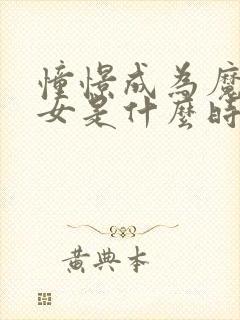 憧憬成為魔
女是什麼時
黃典本